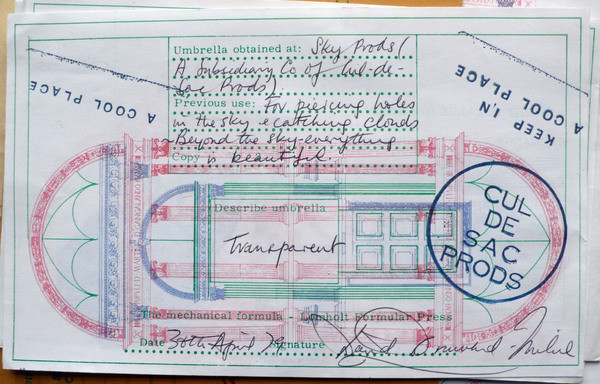 Umbrella obtained at: Sky Prods (
A Subsidiary Co Of Cul-de-
Sac Prods).
Previous use: For piercing holes
in the sky & catching clouds
- Beyond the sky - everything
Copy is beautiful.
KEEP IN
A COOL PLACE
A COOL PLACE
Describe umbrella
Transparent
CUL
DE
SAC
PRODS
The mechanical formula - Lomholt Formular Press
Date 30th April 79 Signature David